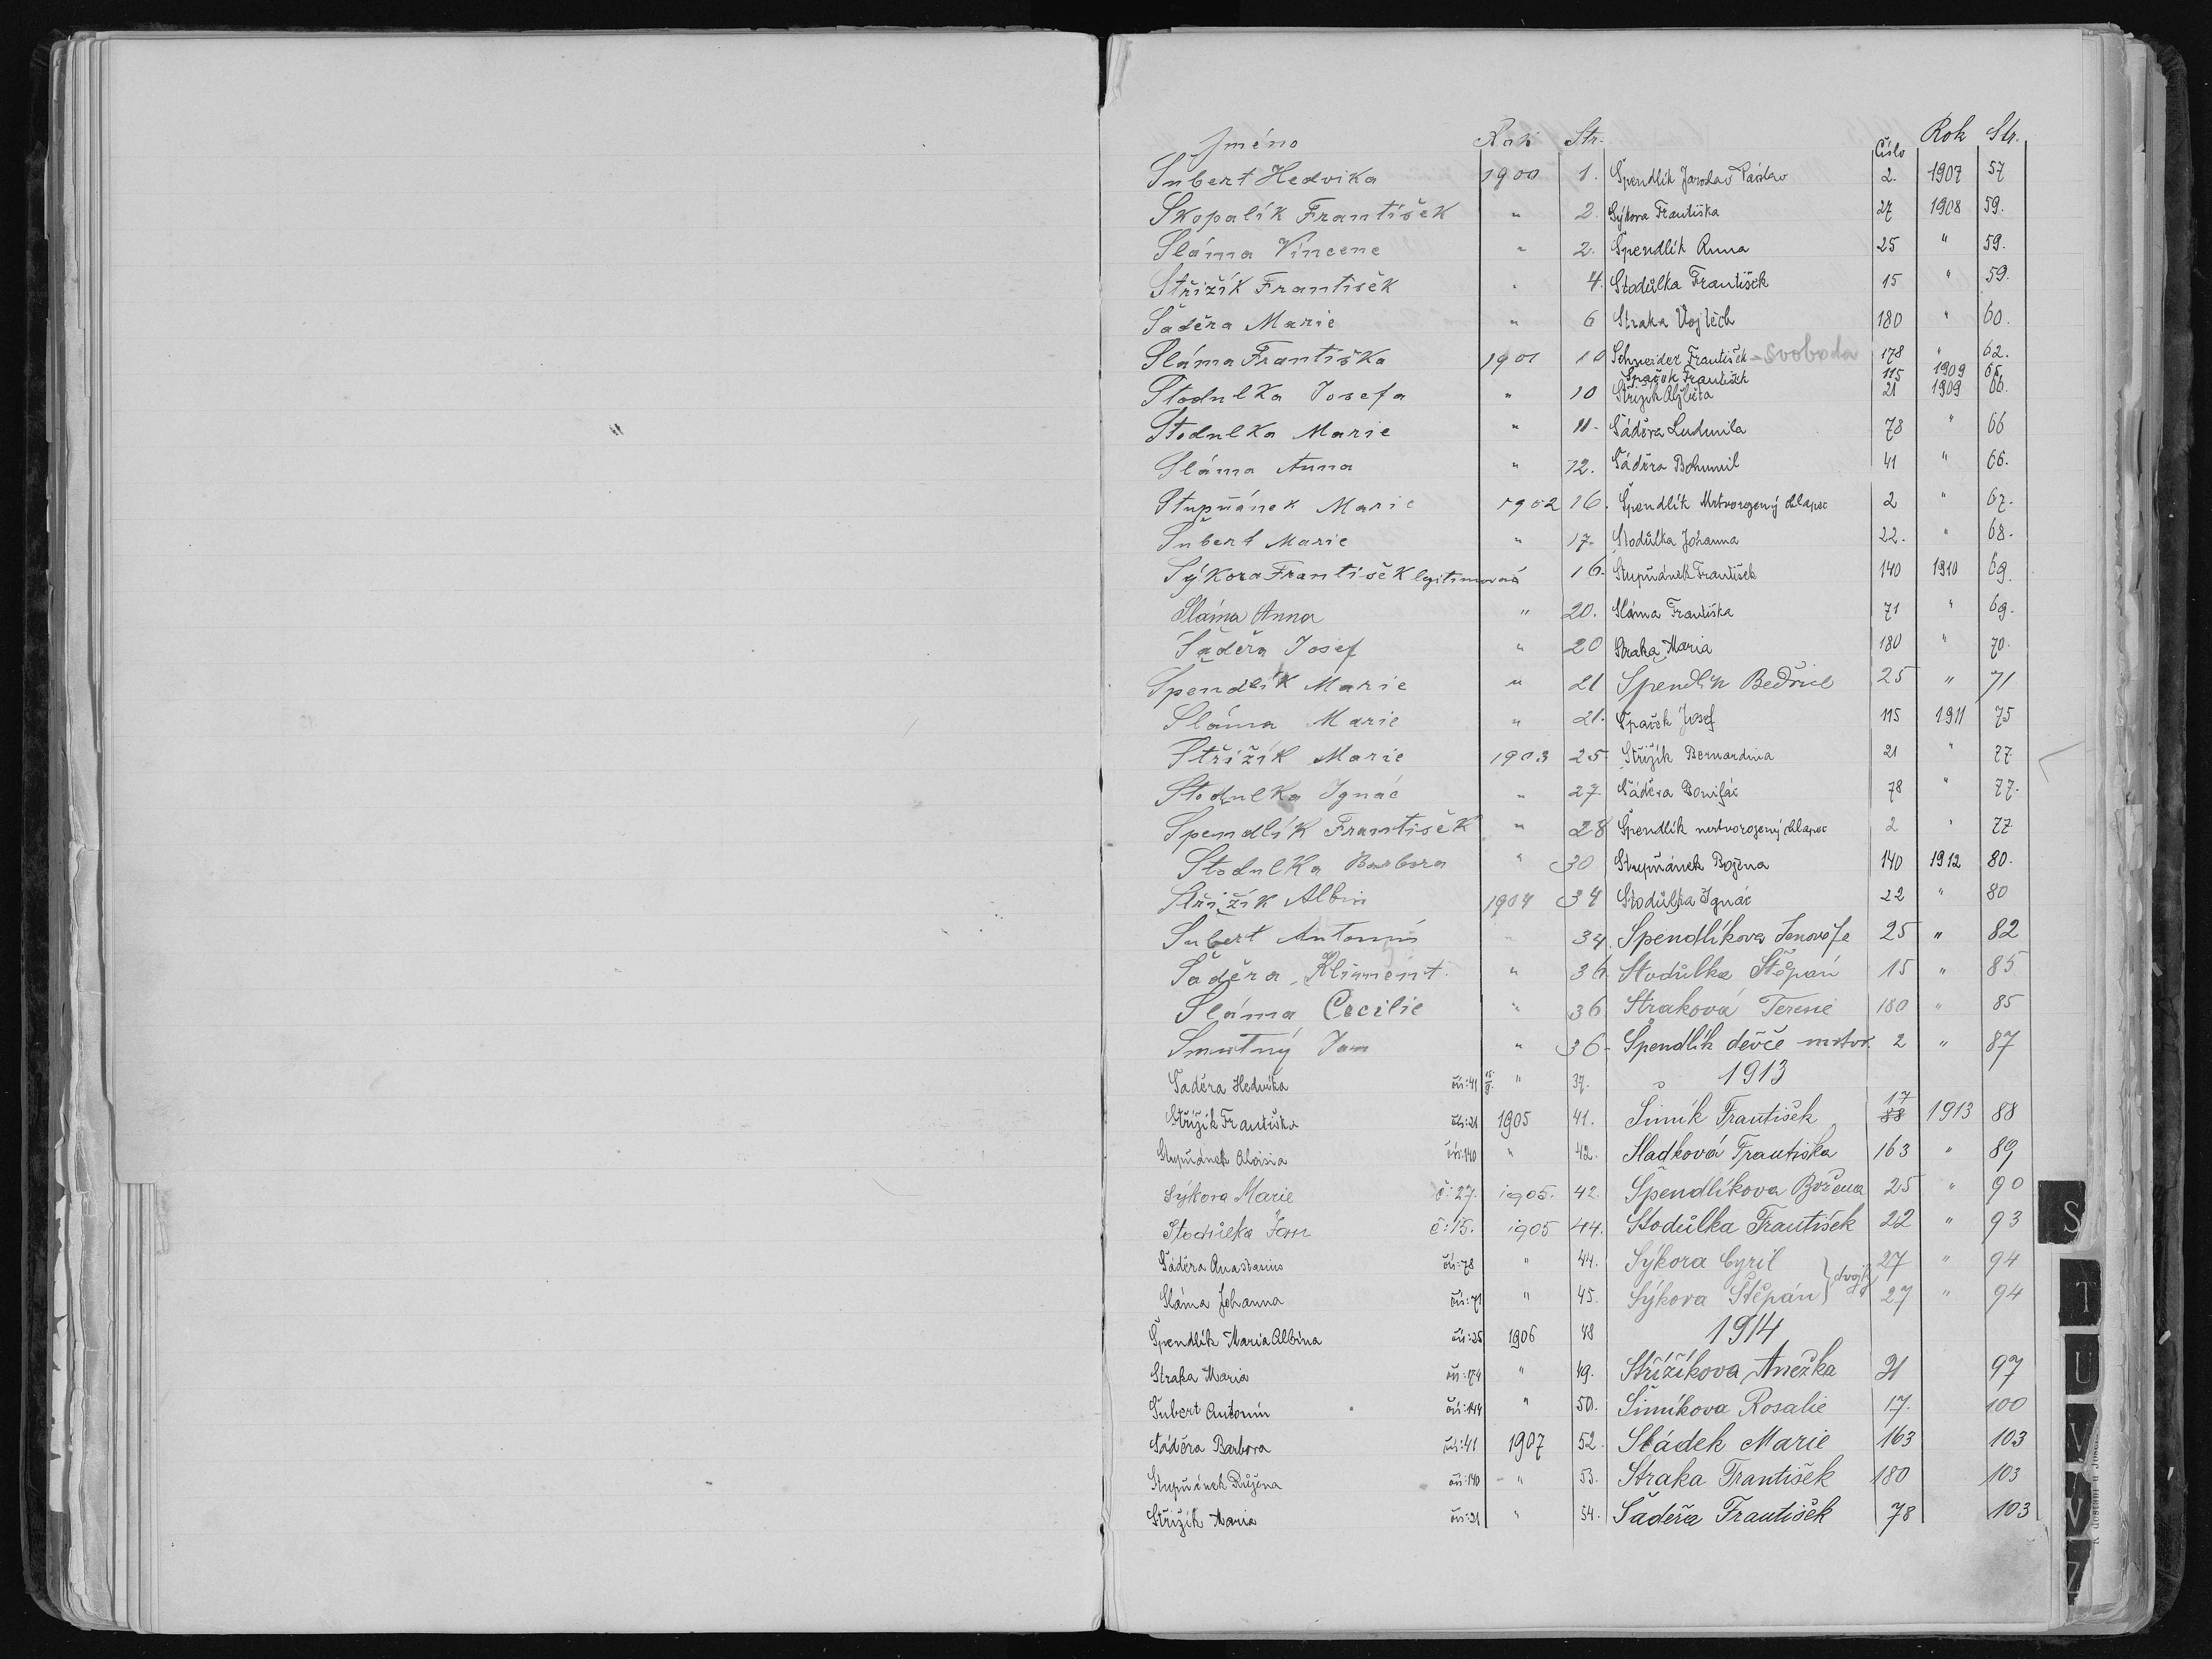 Jméno Rok Str.
Šubert Hedvika 1900 1.
Skopalík František " 2.
Sláma Vincenc " 2.
Střižík František " 4.
Šáděra Marie " 6
Sláma Františka 1901 10
Stodulka Josefa " 10
Stodulka Marie " 11.
Sláma Anna " 12.
Stupňánek Marie 1902 16.
Šubert Marie " 17.
Sýkora František legitimován 16.
Sláma Anna " 20.
Šáděra Josef " 20
Špendlík Marie " 21
Sláma Marie " 21.
Střižík Marie 1903 25
Stodulka Ignác " 27
Špendlík František " 28
Stodulka Barbora " 30
Střižík Albin 1904 34
Šubert Antonín " 34.
Šaděra Kliment. " 36
Sláma Cecilie " 36
Smutný Jan " 36.
Šaděra Hedvika čís: 41 " 37.
Střižík Františka čís: 21 1905 41.
Stupňánek Aloisia čís: 140 " 42.
Sýkora Marie č: 27. 1905. 42.
Stodůlka Jan č: 15. 1905 44.
Šáděra Anastasius čís: 78 " 44.
Sláma Johanna čís: 71 " 45.
Špendlík Maria Albina čís: 25 1906 48
Straka Maria čís: 174 " 49.
Šubert Antonín čís: 144 " 50.
Šáděra Barbora čís: 41 1907 52.
Stupňánek Růžena čís: 140 " 53.
Střižík Maria čís: 21 " 54.
Číslo Rok Str.
Špendlík Jaroslav Václav 2. 1907 57
Sýkora Františka 27 1908 59.
Špendlík Anna 25 " 59.
Stodůlka František 15 " 59.
Straka Vojtěch 180 " 60.
Schneider František - Svoboda 178 " 62.
Špaček František 115 1909 65.
Střižík Alžběta 21 1909 66.
Šáděra Ludmila 78 " 66
Šáděra Bohumil 41 " 66.
Špendlík Mrtvorozený chlapec 2 " 67.
Stodůlka Johanna 22. " 68.
Stupňánek František 140 1910 69.
Sláma Františka 71 " 69.
Straka Maria 180 " 70.
Špendlík Bedřich 25 " 71
Špaček Josef 115 1911 75
Střižík Bernardina 21 " 77.
Šáděra Bonifác 78 " 77.
Špendlík mrtvorozený chlapec 2 " 77.
Stupňánek Božena 140 1912 80.
Stodůlka Ignác 22 " 80
Špendlíkova Jenovéfa 25 " 82
Stodůlka Štěpán 15 " 85
Straková Teresie 180 " 85
Špendlík děvče mrtvr. 2 " 87
1913
Šimík František 17 88 1913 88
Sladková Františka 163 " 89
Špendlíkova Božena 25 " 90
Stodůlka František 22 " 93
Sýkora Cyril 27 " 94
Sýkora Štěpán } dvojč. 27 " 94
1914
Střížíkova Anežka 21 97
Šimíkova Rosalie 17. 100
Sládek Marie 163 103
Straka František 180 103
Šaděra František 78 103
S
T
U
V
W
Z